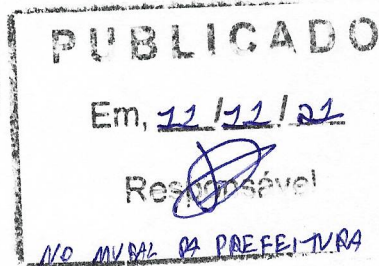 PUBLICADO
Em, 11/11/21
Responsável
NO MURAL DA PREFEITURA